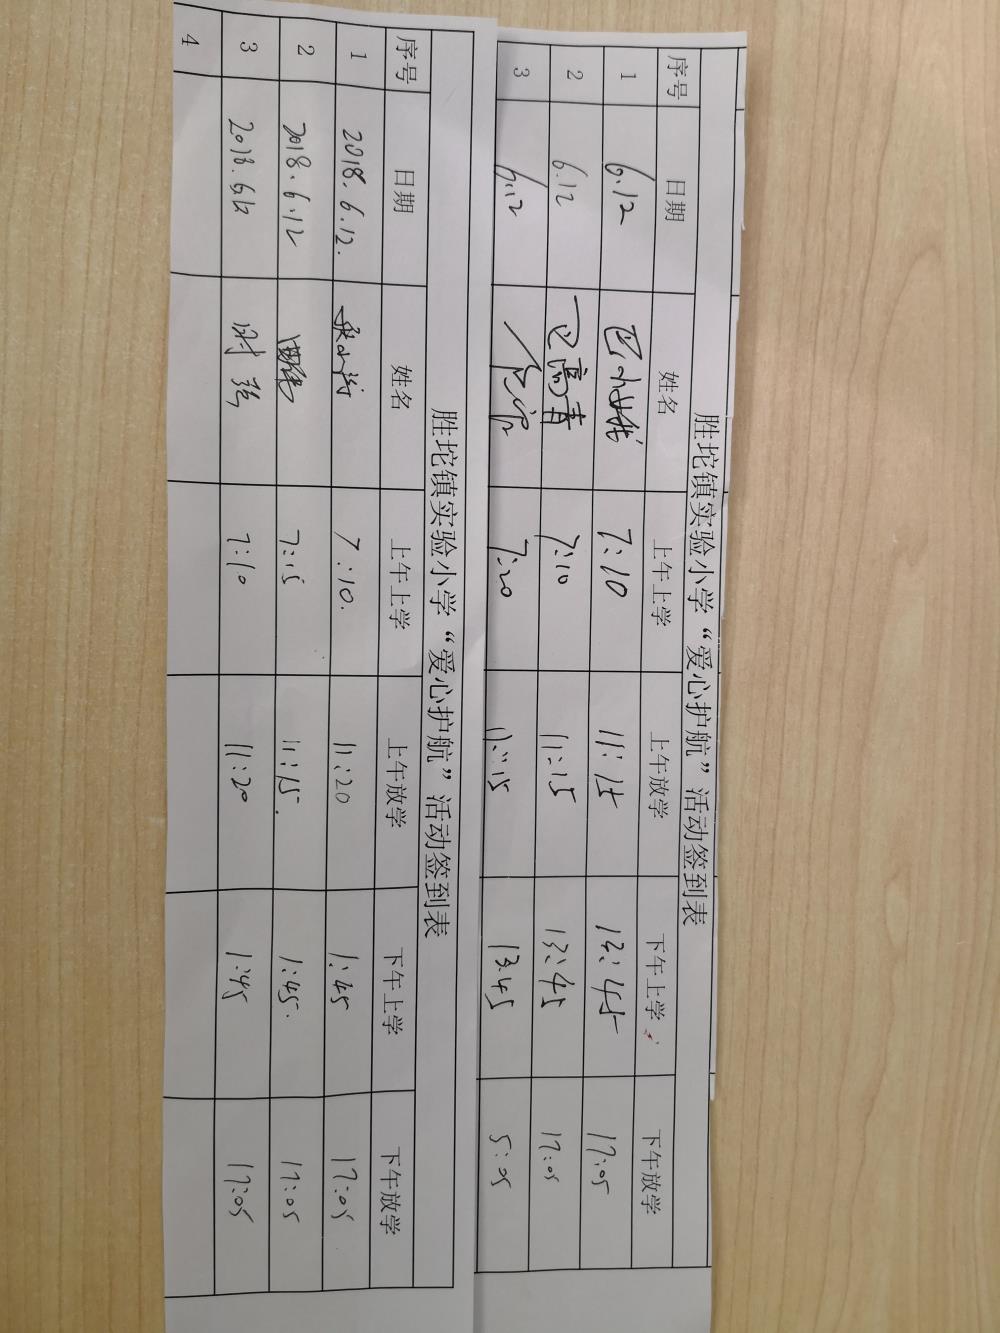 胜坨镇实验小学“爱心护航”活动签到表
序号 日期 姓名 上午上学 上午放学 下午上学 下午放学
1 6.12 7:10 11:15 13:45 17:05
2 6.12 7:10 11:15 13:45 17:05
3 6.12 7:20 11:15 13:45 5:05
胜坨镇实验小学“爱心护航”活动签到表
序号 日期 姓名 上午上学 上午放学 下午上学 下午放学
1 2018.6.12. 7:10. 11:20 1:45 17:05
2 2018.6.12 7:15 11:15. 1:45. 17:05
3 2018.6.12 7:10 11:20 1:45 17:05
4